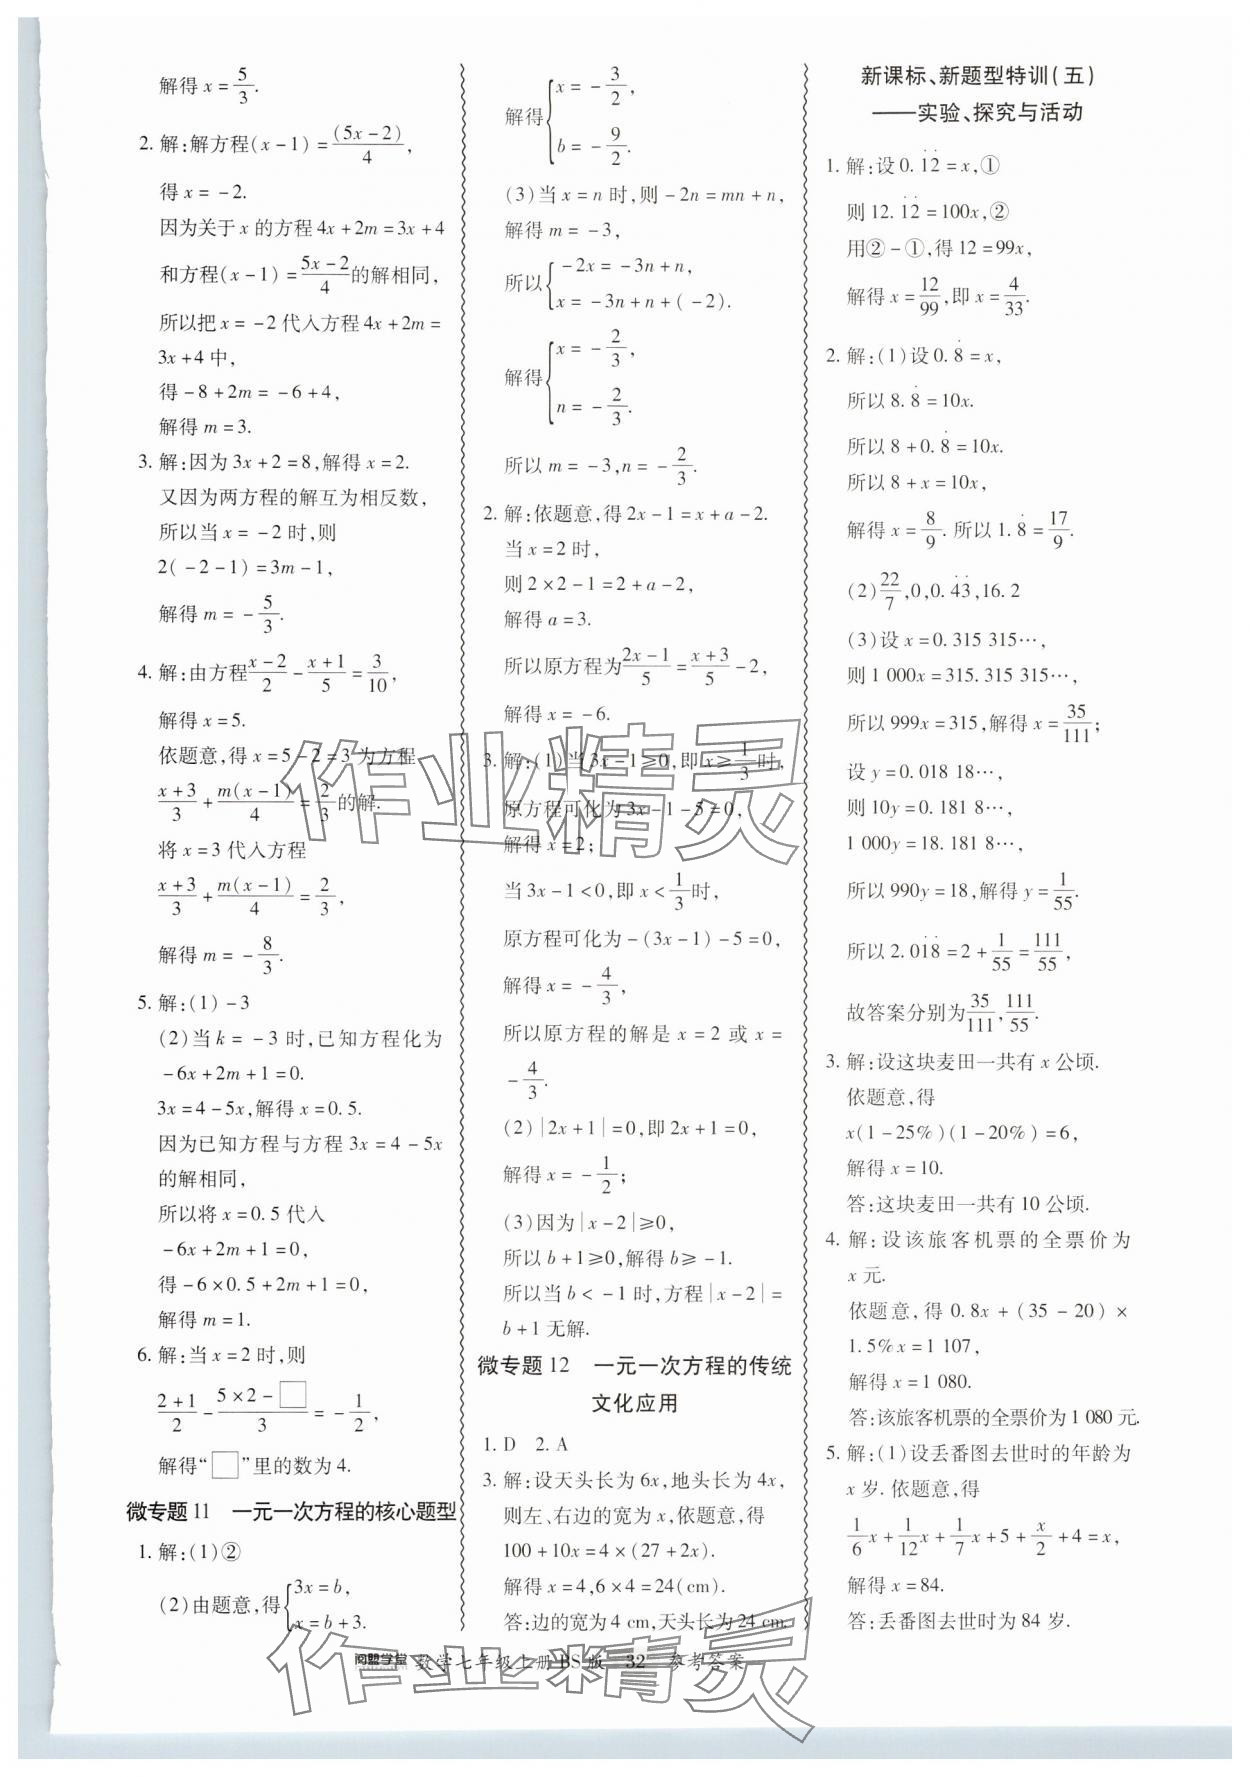 解得 x = 5/3.
2. 解:解方程(x-1) = (5x-2)/4,
得 x = -2.
因为关于 x 的方程 4x+2m=3x+4
和方程(x-1) = (5x-2)/4 的解相同,
所以把 x = -2 代入方程 4x+2m=
3x+4 中,
得 -8+2m = -6+4,
解得 m = 3.
3. 解:因为 3x+2=8,解得 x=2.
又因为两方程的解互为相反数,
所以当 x = -2 时,则
2(-2-1) = 3m-1,
解得 m = -5/3.
4. 解:由方程 (x-2)/2 - (x+1)/5 = 3/10,
解得 x=5.
依题意,得 x=5-2=3 为方程
(x+3)/3 + m(x-1)/4 = 2/3 的解.
将 x=3 代入方程
(x+3)/3 + m(x-1)/4 = 2/3,
解得 m = -8/3.
5. 解:(1) -3
(2)当 k = -3 时,已知方程化为
-6x+2m+1=0.
3x=4-5x,解得 x=0.5.
因为已知方程与方程 3x=4-5x
的解相同,
所以将 x=0.5 代入
-6x+2m+1=0,
得 -6×0.5+2m+1=0,
解得 m=1.
6. 解:当 x=2 时,则
(2+1)/2 - (5×2-□)/3 = -1/2,
解得“□”里的数为 4.
微专题 11 一元一次方程的核心题型
1. 解:(1)②
(2)由题意,得{3x=b,
x=b+3.
解得{x = -3/2,
b = -9/2.
(3)当 x=n 时,则 -2n=mn+n,
解得 m = -3,
所以{-2x = -3n+n,
x = -3n+n+(-2).
解得{x = -2/3,
n = -2/3.
所以 m = -3,n = -2/3.
2. 解:依题意,得 2x-1=x+a-2.
当 x=2 时,
则 2×2-1=2+a-2,
解得 a=3.
所以原方程为 (2x-1)/5 = (x+3)/5 - 2,
解得 x = -6.
3. 解:(1)当 3x-1≥0,即 x≥1/3 时,
原方程可化为 3x-1-5=0,
解得 x=2;
当 3x-1<0,即 x<1/3 时,
原方程可化为 -(3x-1)-5=0,
解得 x = -4/3,
所以原方程的解是 x=2 或 x=
-4/3.
(2)|2x+1|=0,即 2x+1=0,
解得 x = -1/2;
(3)因为|x-2|≥0,
所以 b+1≥0,解得 b≥-1.
所以当 b<-1 时,方程|x-2|=
b+1 无解.
微专题 12 一元一次方程的传统
文化应用
1. D 2. A
3. 解:设天头长为 6x,地头长为 4x,
则左、右边的宽为 x,依题意,得
100+10x=4×(27+2x).
解得 x=4,6×4=24(cm).
答:边的宽为 4 cm,天头长为 24 cm.
新课标、新题型特训(五)
——实验、探究与活动
1. 解:设 0.1̇2̇=x,①
则 12.1̇2̇=100x,②
用②-①,得 12=99x,
解得 x = 12/99,即 x = 4/33.
2. 解:(1)设 0.8̇=x,
所以 8.8̇=10x.
所以 8+0.8̇=10x.
所以 8+x=10x,
解得 x = 8/9. 所以 1.8̇ = 17/9.
(2)22/7,0,0.4̇3̇,16.2
(3)设 x=0.315 315…,
则 1 000x=315.315 315…,
所以 999x=315,解得 x = 35/111;
设 y=0.018 18…,
则 10y=0.181 8…,
1 000y=18.181 8…,
所以 990y=18,解得 y = 1/55.
所以 2.01̇8̇ = 2 + 1/55 = 111/55,
故答案分别为 35/111,111/55.
3. 解:设这块麦田一共有 x 公顷.
依题意,得
x(1-25%)(1-20%)=6,
解得 x=10.
答:这块麦田一共有 10 公顷.
4. 解:设该旅客机票的全票价为
x 元.
依题意,得 0.8x+(35-20)×
1.5%x=1 107,
解得 x=1 080.
答:该旅客机票的全票价为 1 080 元.
5. 解:(1)设丢番图去世时的年龄为
x 岁. 依题意,得
1/6 x + 1/12 x + 1/7 x + 5 + x/2 + 4 = x,
解得 x=84.
答:丢番图去世时为 84 岁.
作业精灵
作业精灵
问题学堂 数学七年级上册 BS 版 32 参考答案